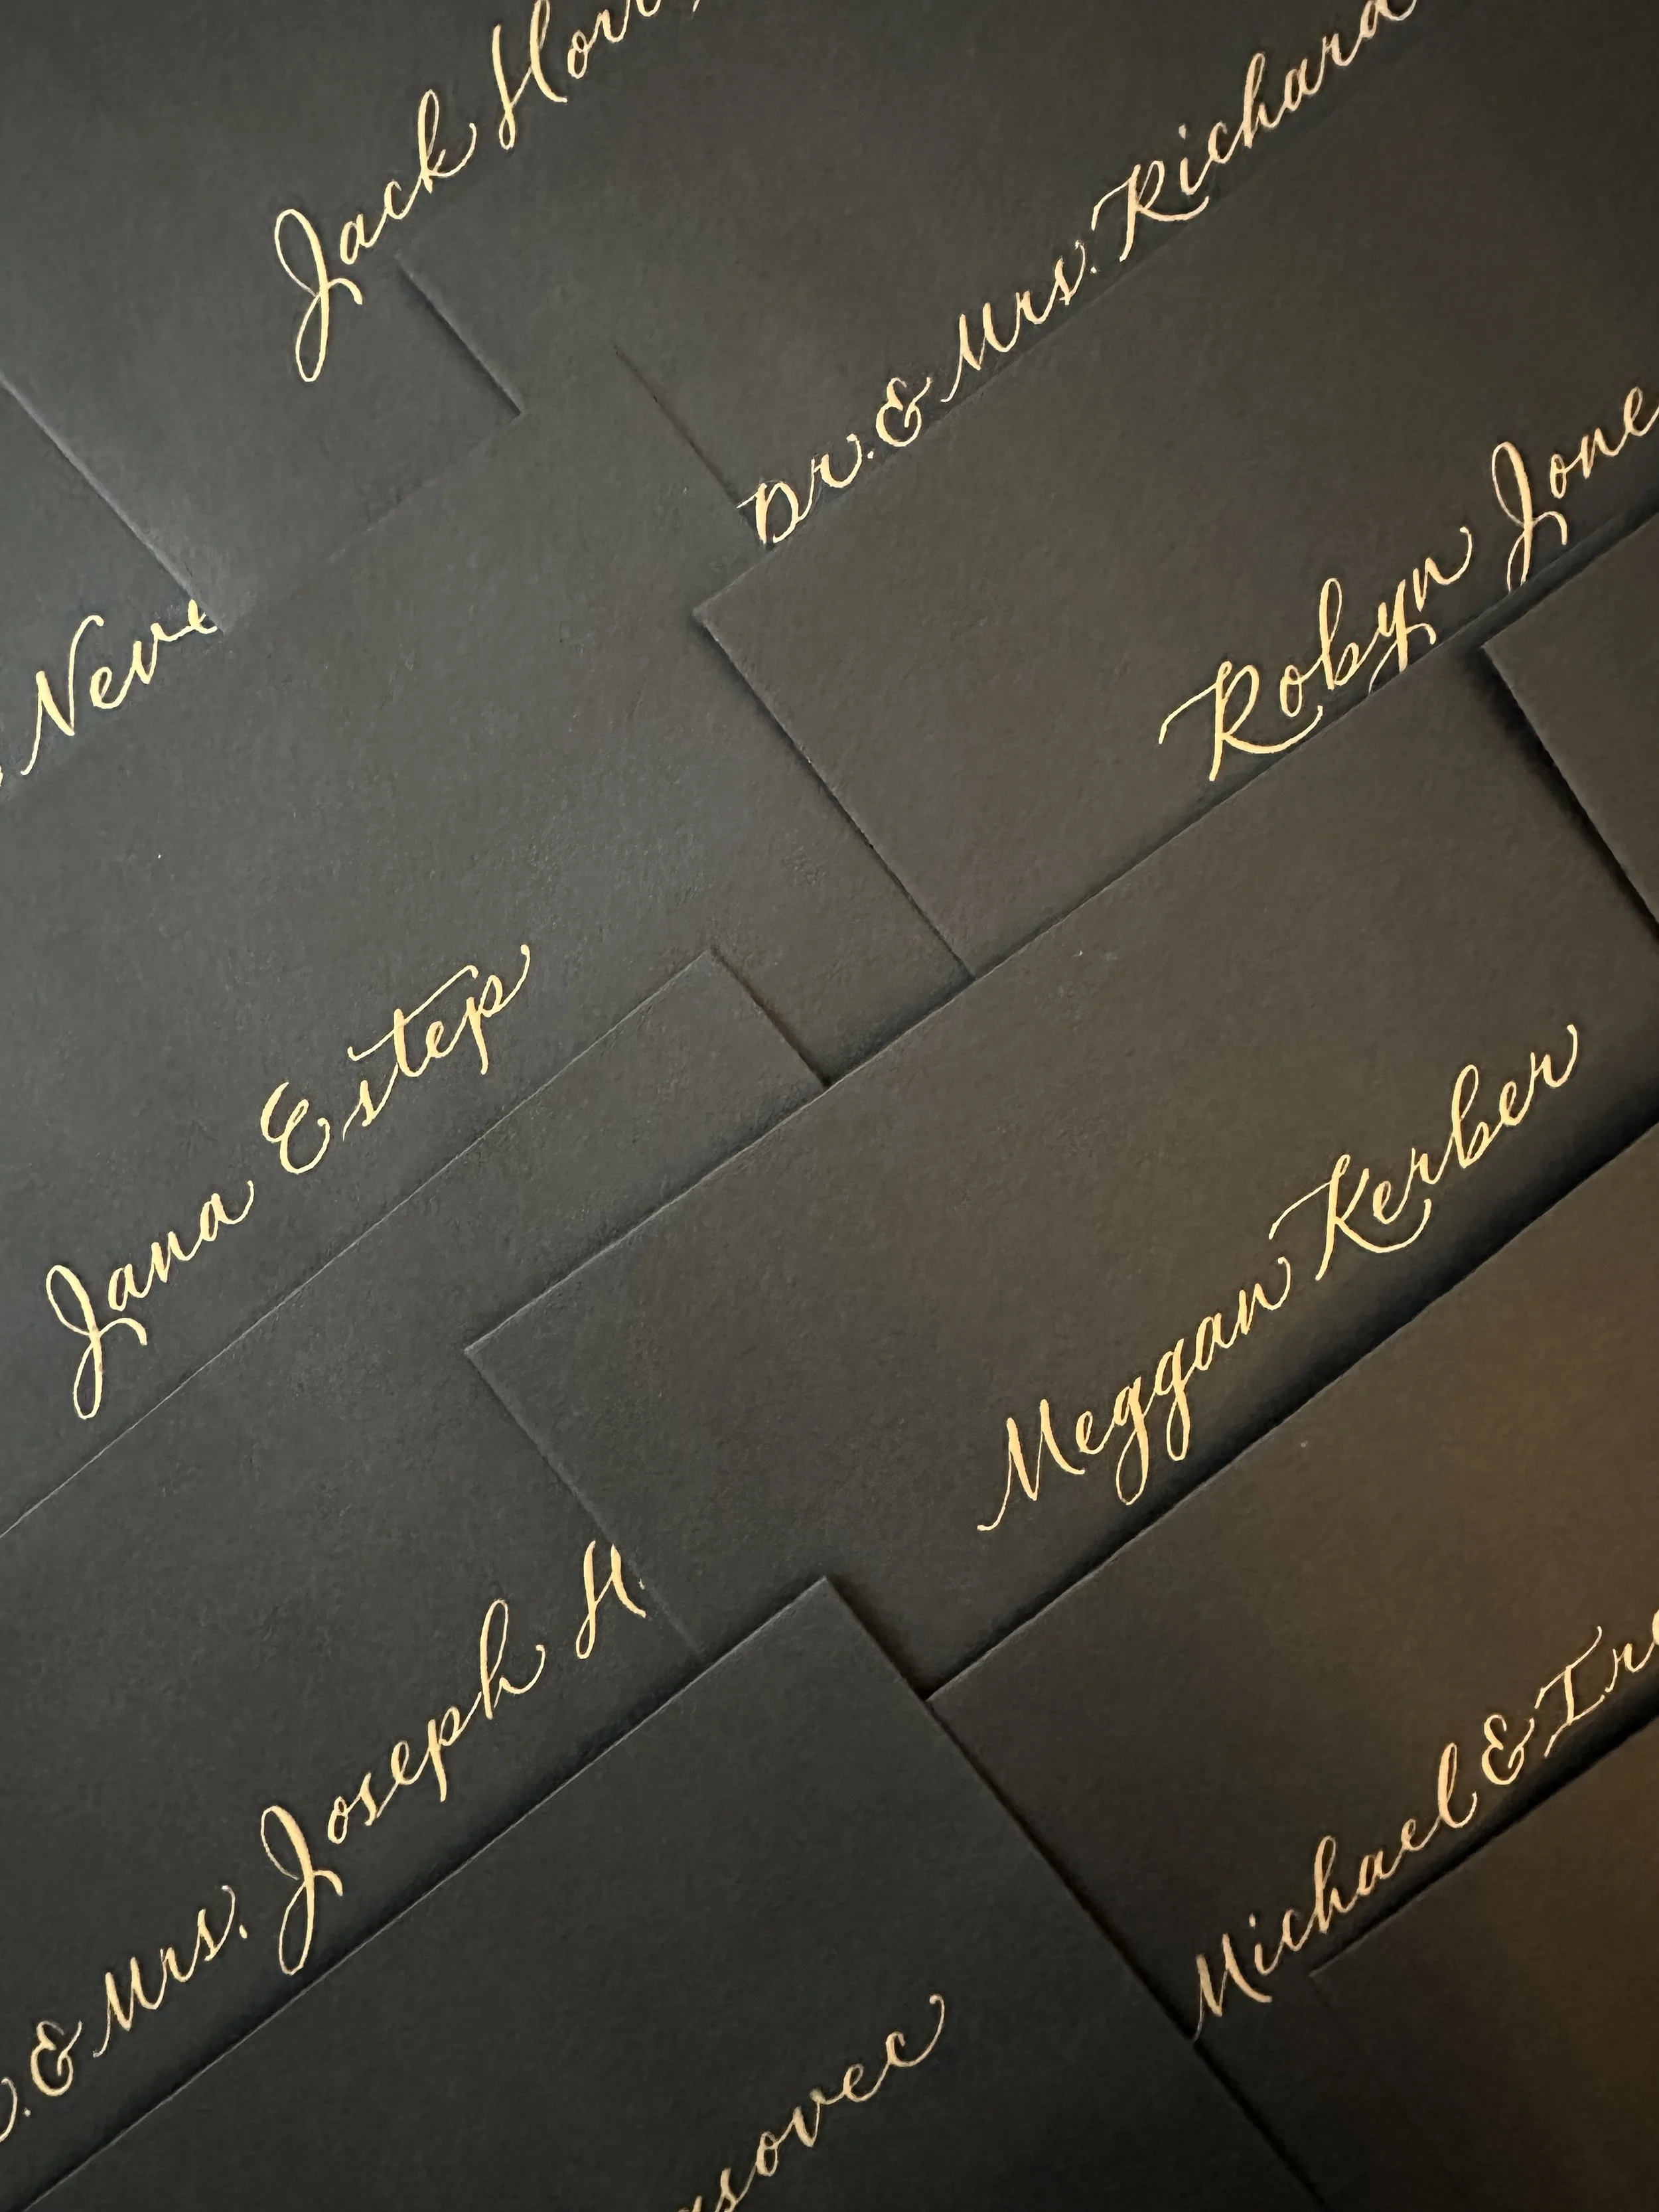 Jack Horr
Dr. & Mrs. Richard
Neve
Robyn Jone
Jana Estep
Meggan Kerber
& Mrs. Joseph H
Michael & Ire
sovec